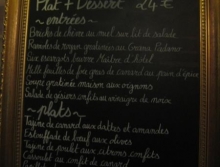 Plat + Dessert 24 €
~ entrées ~
Brochette de chèvre au miel sur lit de salade
Ravioles de royan gratinées au
aux escargots beurre Maître d'Hôtel
Mille feuilles de foie gras de canard au pain d'épices
Soupe gratinée maison aux oignons
Salade de gésiers confits au vinaigre de noix
~ plats ~
Tajine de canard aux dattes et amandes
Estouffade de boeuf aux olives
Tajine de poulet aux citrons confits
Cassoulet au confit de canard